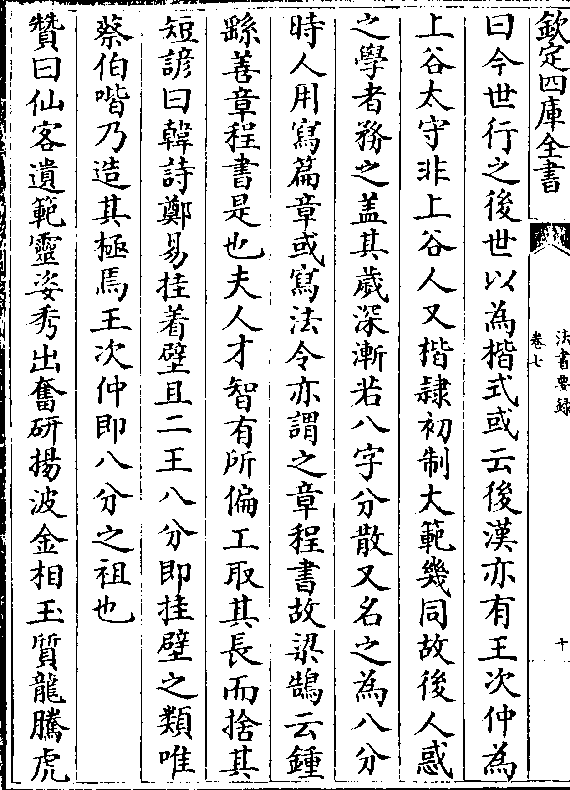 欽定四庫全書
法書要録
卷七
十
曰今世行之後世以為楷式或云後漢亦有王次仲為
上谷太守非上谷人又楷隸初制大範幾同故後人惑
之學者務之盖其歲深漸若八字分散又名之為八分
時人用寫篇章或寫法令亦謂之章程書故梁鵠云鍾
繇善章程書是也夫人才智有所偏工取其長而捨其
短諺曰韓詩鄭易挂着壁且二王八分即挂壁之類唯
蔡伯喈乃造其極焉王次仲即八分之祖也
贊曰仙客遺範靈姿秀出奮研揚波金相玉質龍騰虎